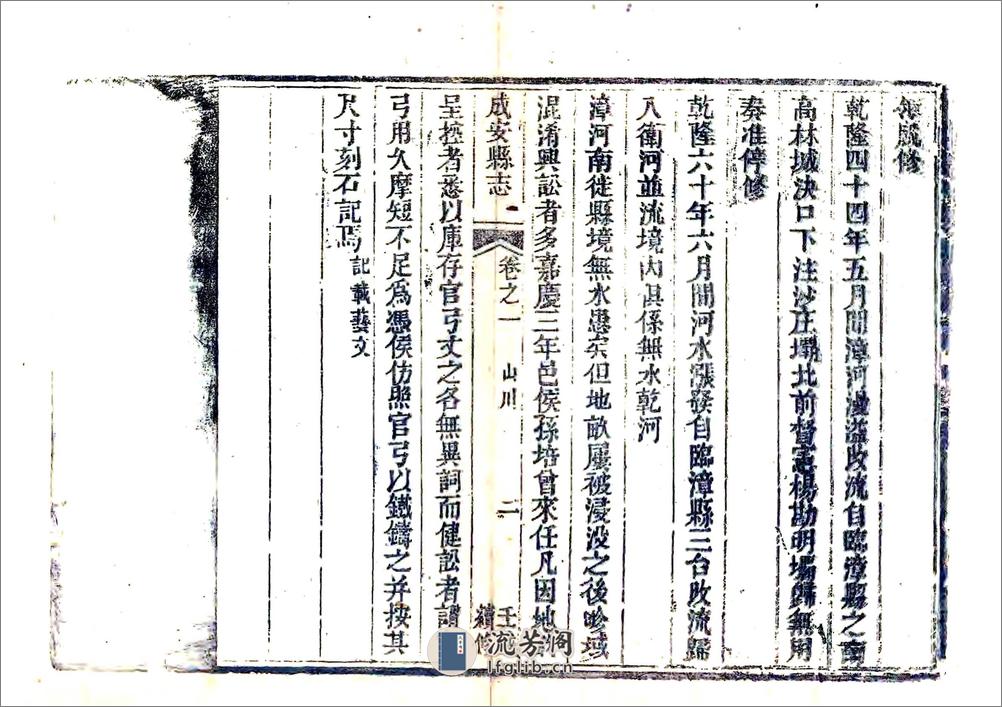 修
乾隆四十四年五月間漳河漫溢改流自臨漳縣之南
高林城決口下注沙庄壩北前督憲楊勘明壩歸無用
奏准停修
乾隆六十年六月間河水漲發自臨漳縣三台改流歸
入衛河並流境內俱係無水乾河
漳河南徙縣境無水患矣但地畝屢被浸没之後畛域
混淆興訟者多嘉慶三年邑侯孫培曾來任凡因地
成安縣志 卷之一 山川 二 壬 續修
呈控者悉以庫存官弓丈之各無異詞而健訟者謂
弓用久摩短不足為憑侯仿照官弓以鐵鑄之并按其
尺寸刻石記焉 記載藝文
流芳阁
lfglib.cn